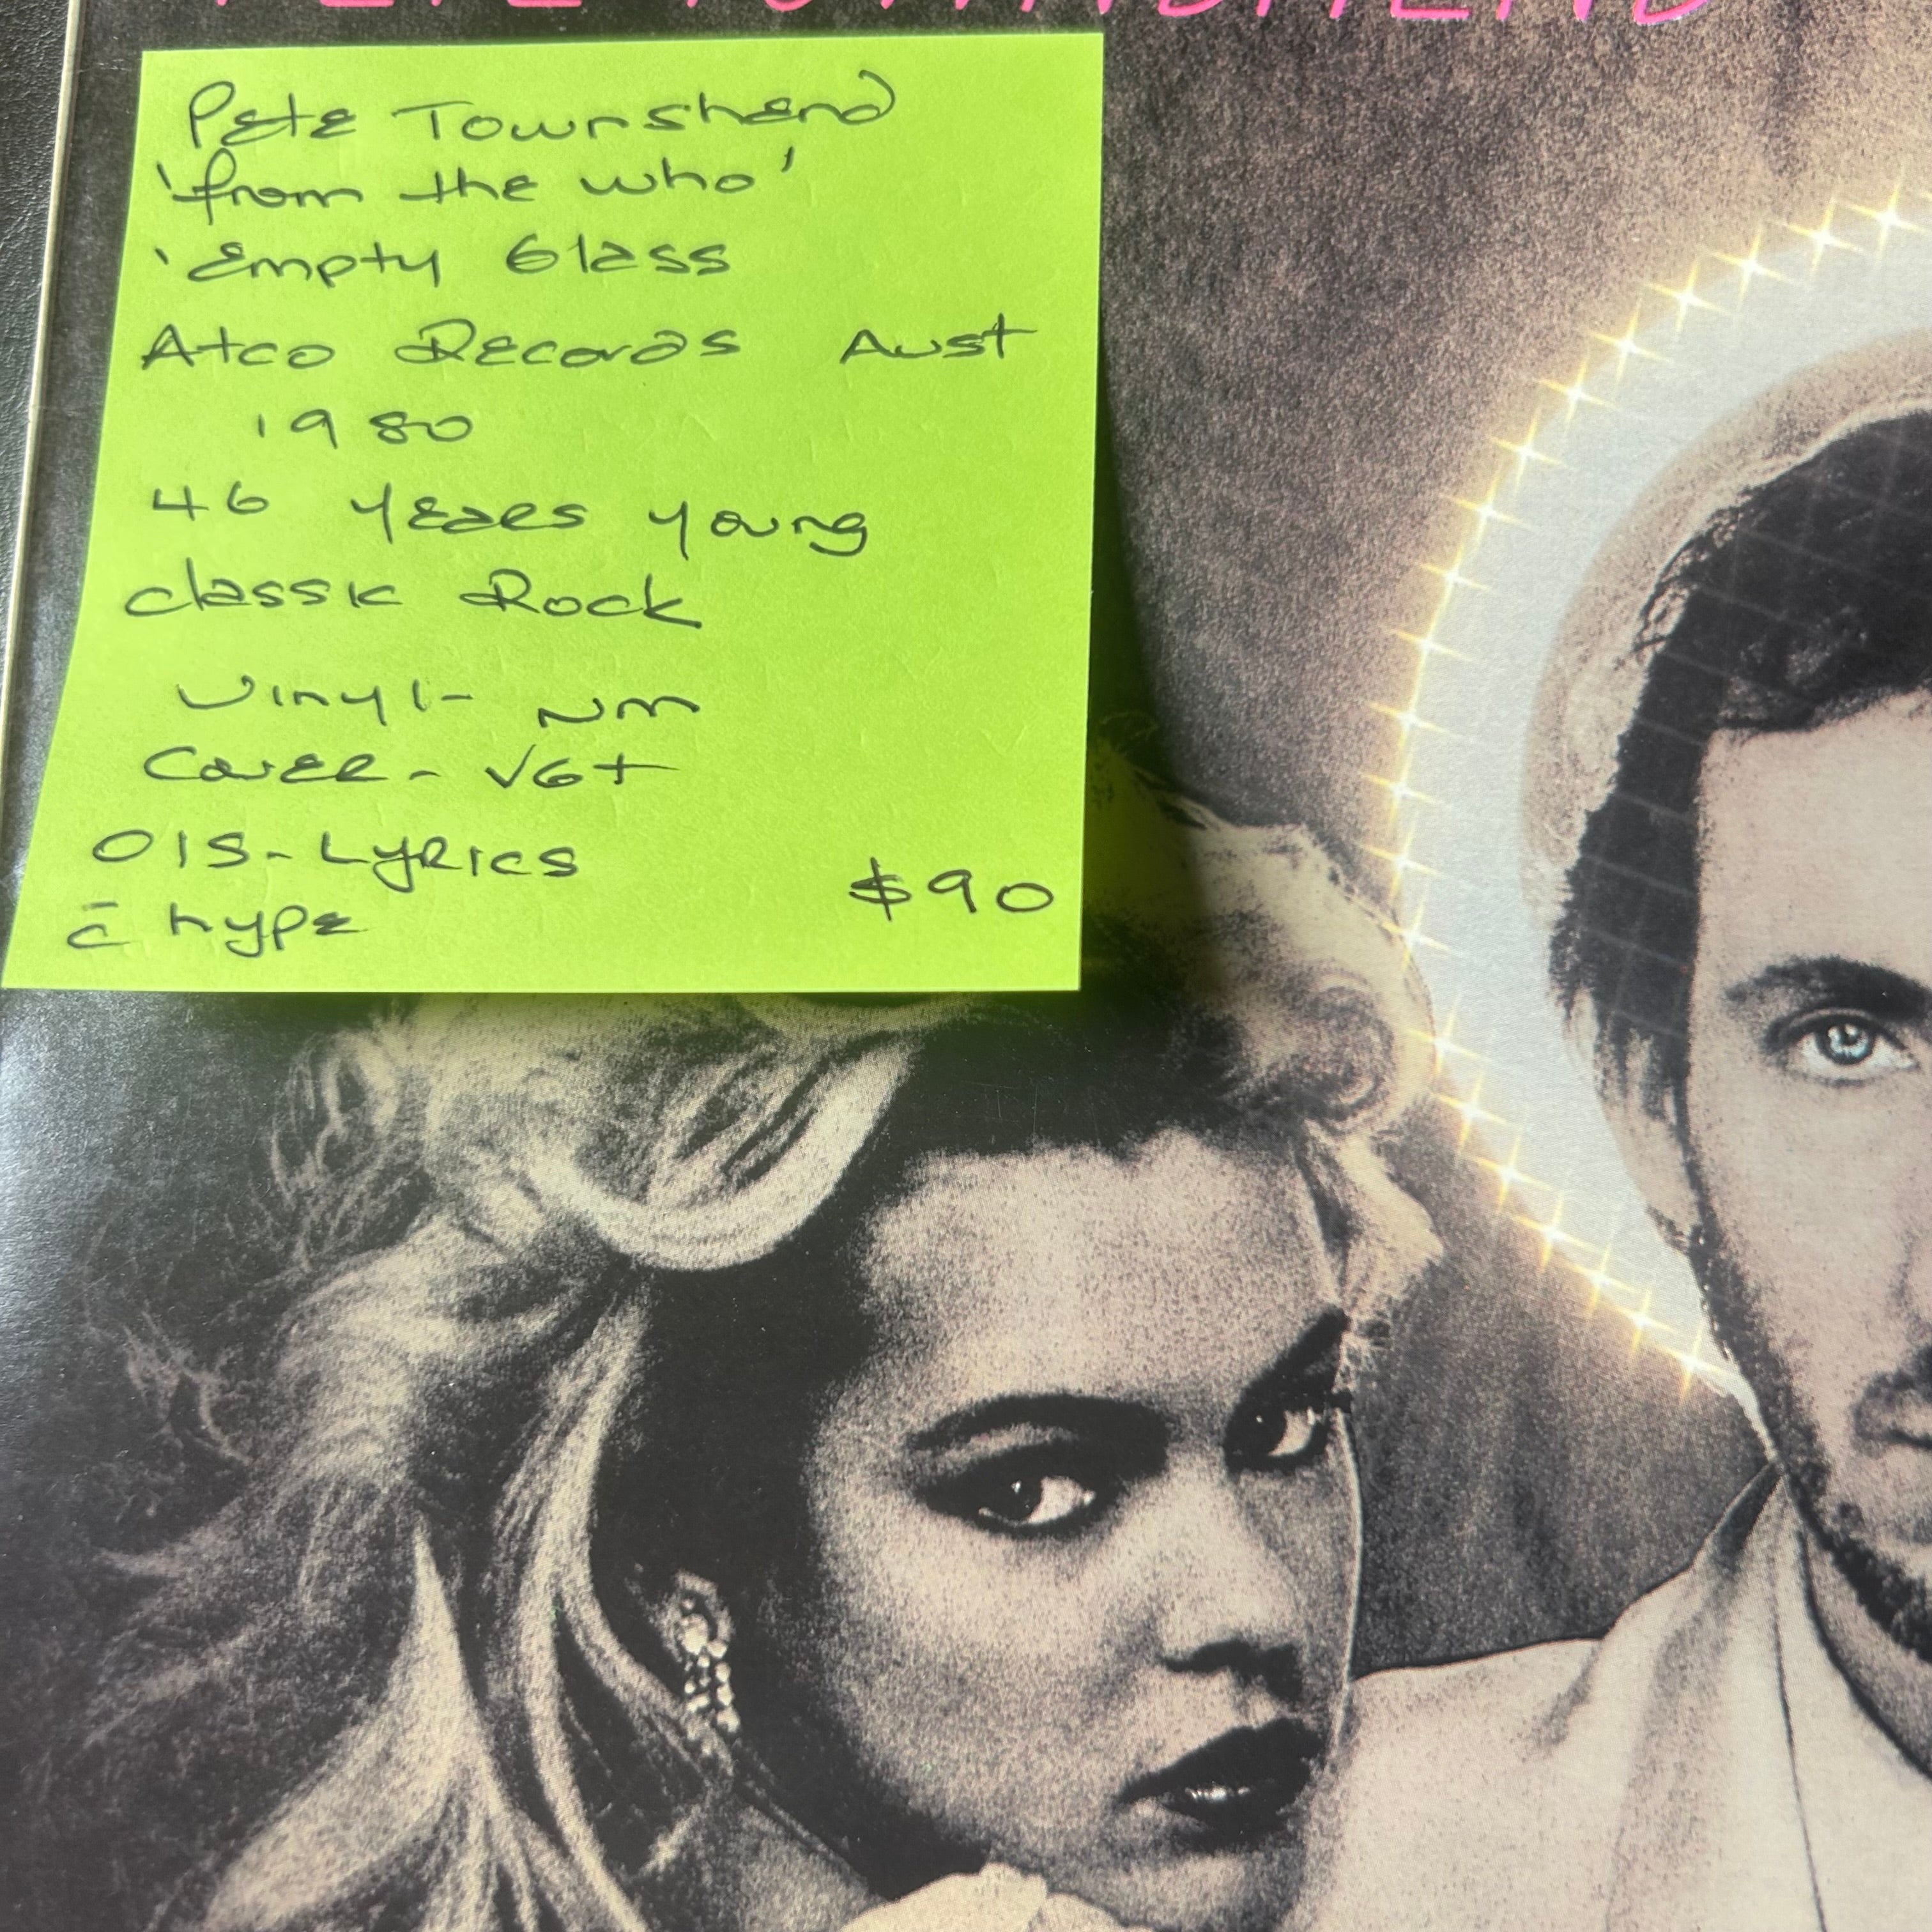 PETE TOWNSHEND
Pete Townshend
'from the who'
'Empty Glass
Atco Records Aust
1980
46 years young
classic Rock
Vinyl - NM
Cover - VG+
OIS - Lyrics
$90
c̄ hype